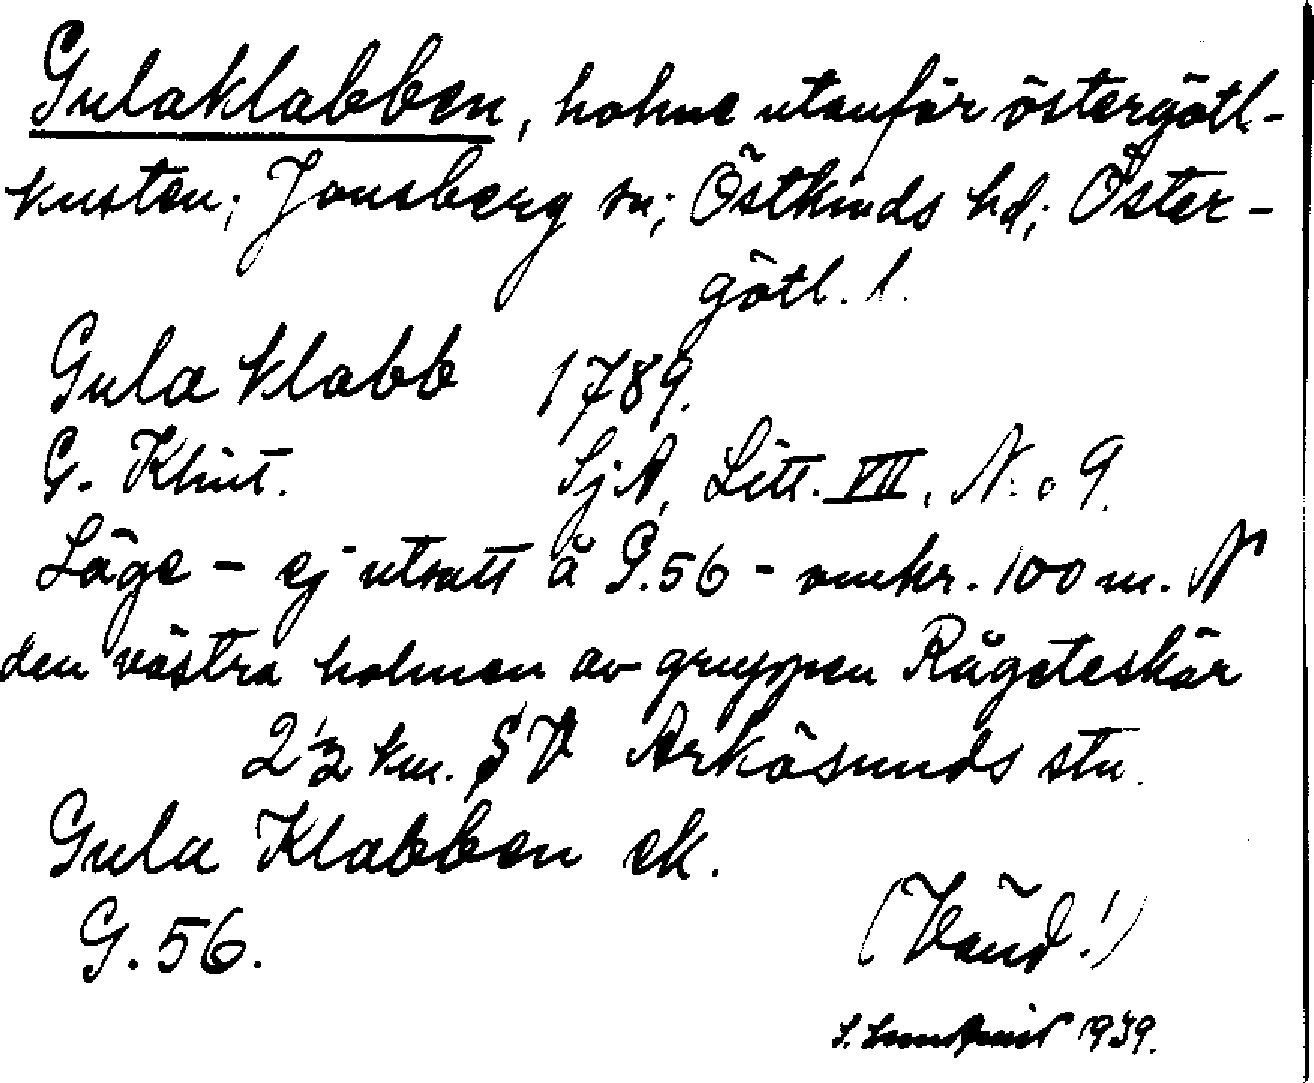 Gulaklabben, holme utanför östergötl-
kusten; Jonsberg sn; Östkinds hd; Öster-
götl. l.
Gula klabb 1789.
G. Klint. SjA, Litt. VII, N:o 9.
Läge - ej utsatt å G.56 - omkr. 100 m. N
den västra holmen av gruppen Rågeteskär
2 1/2 km. SV Arkösunds stn.
Gula Klabben ek.
G. 56.
(Vänd!)
S. 1939.